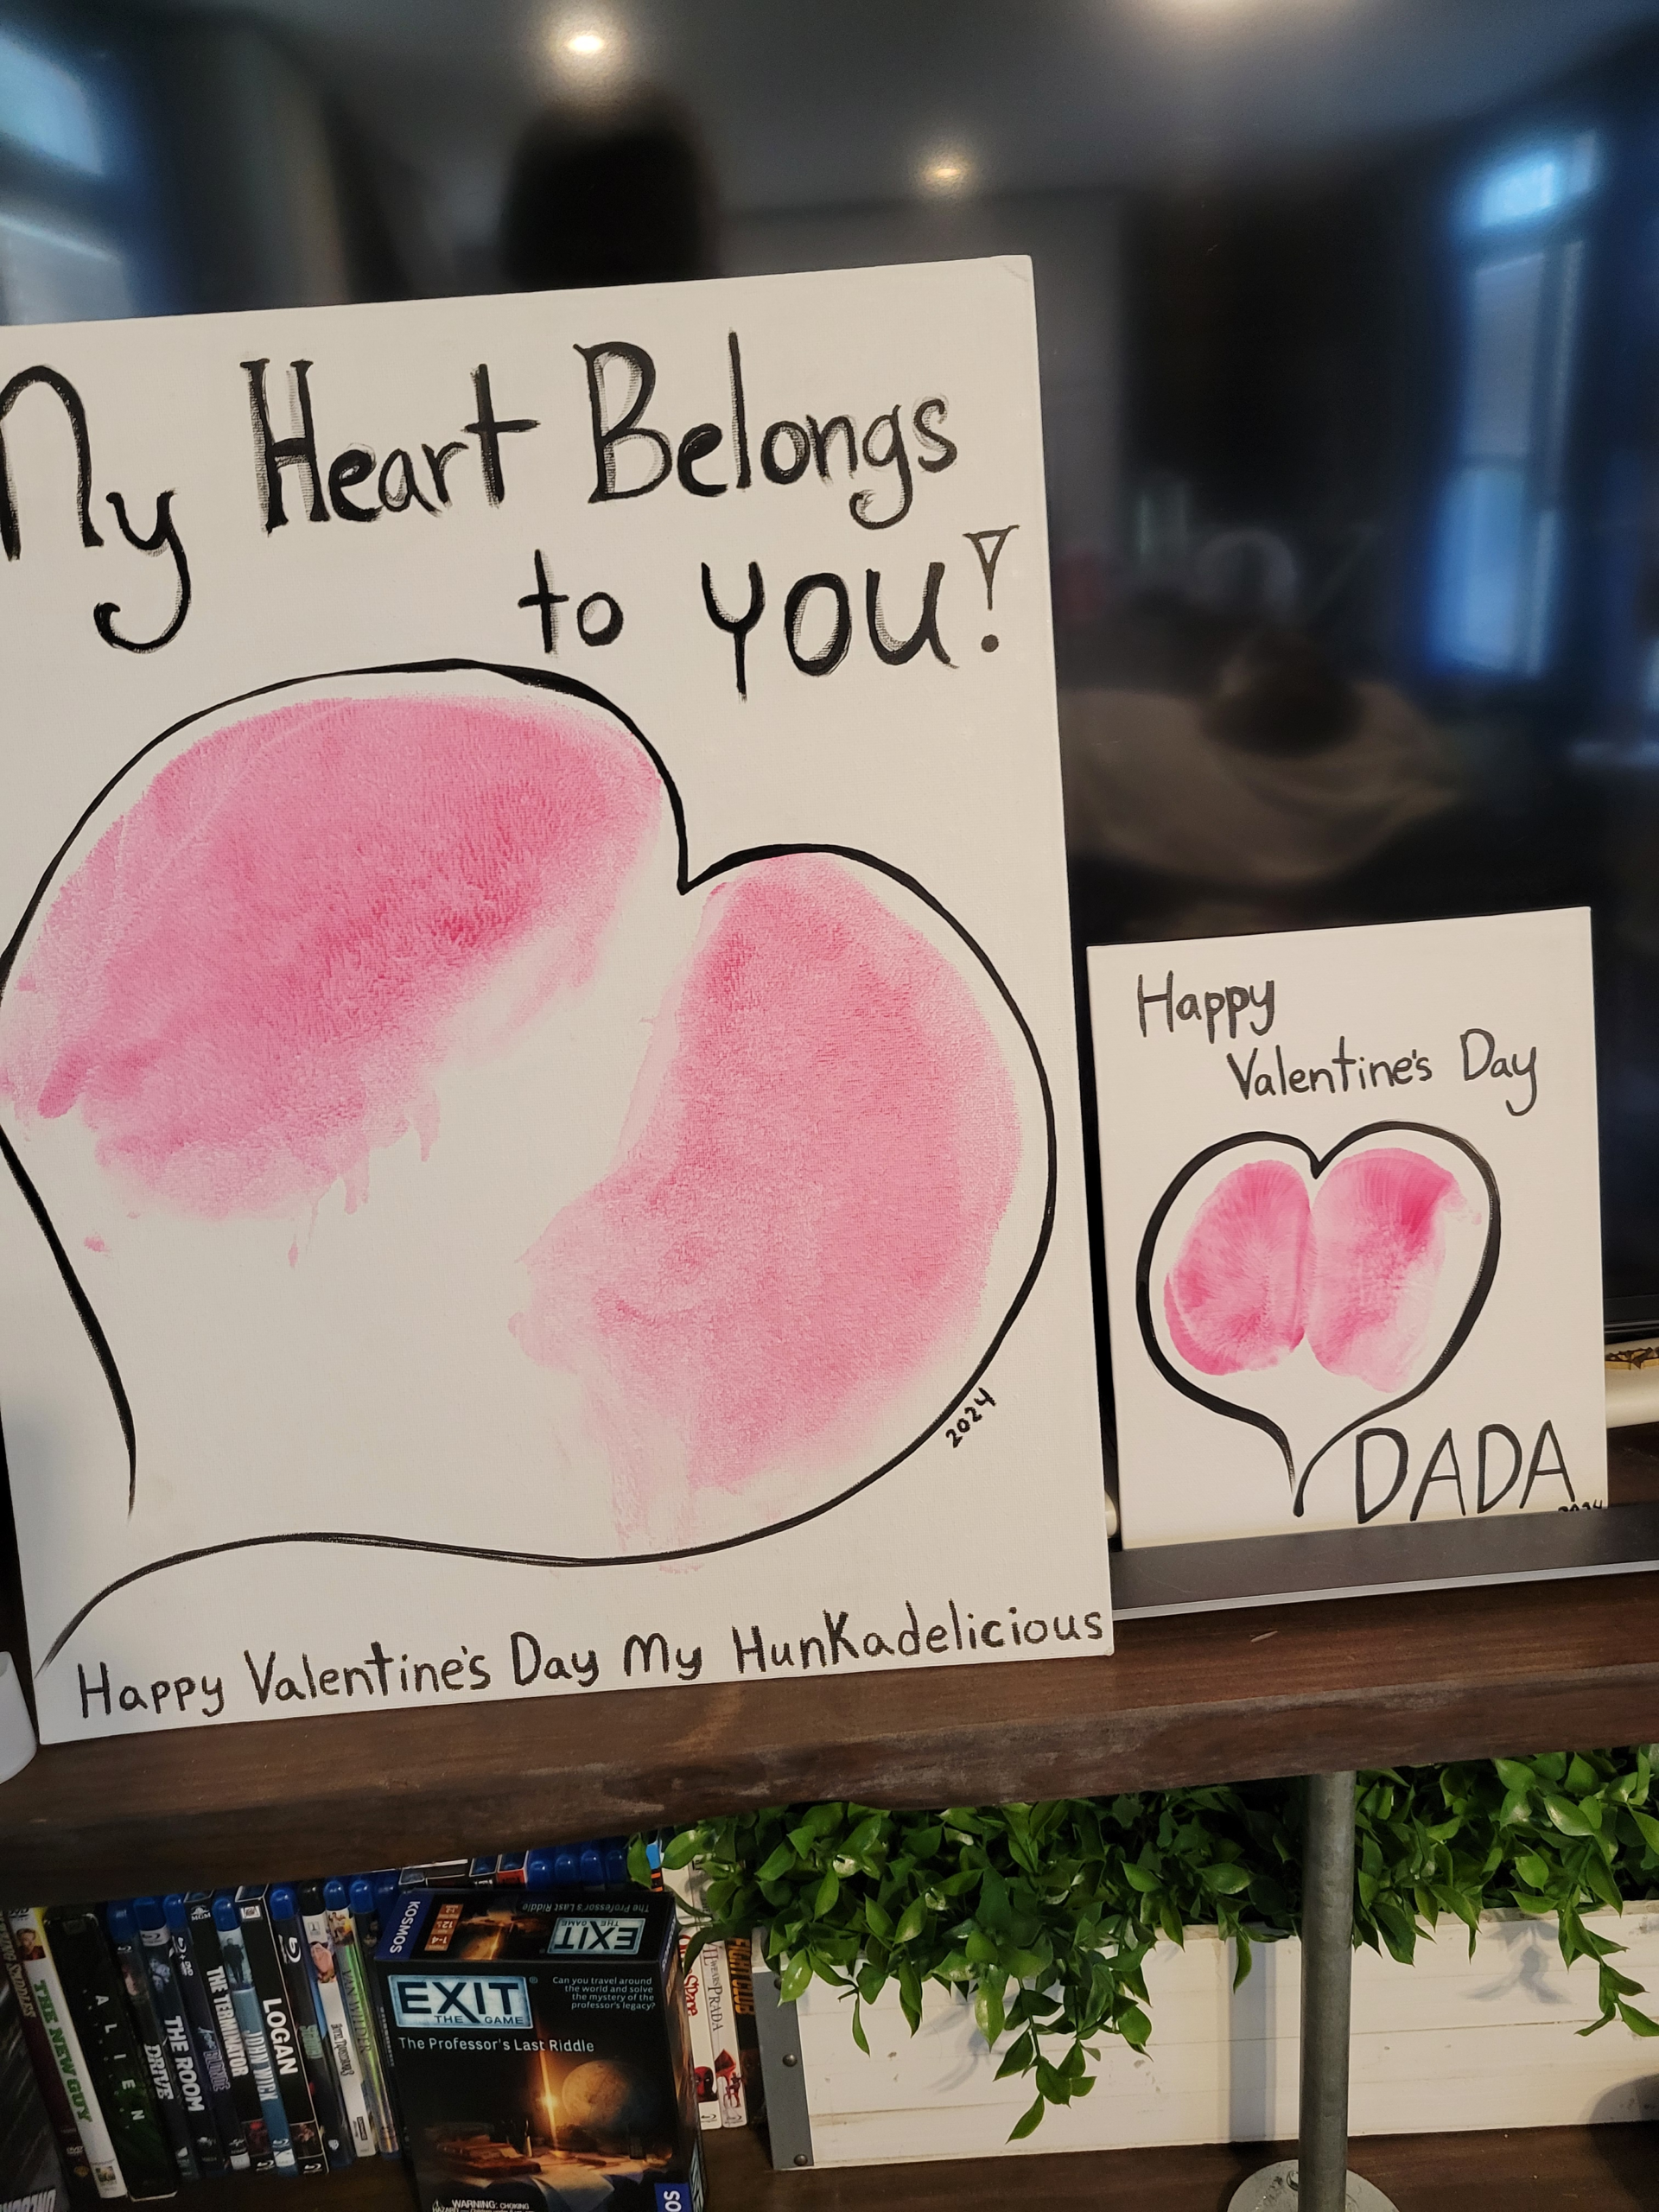 My Heart Belongs
to YOU!
2024
Happy Valentine's Day My HunKadelicious
Happy
Valentine's Day
DADA
2024
THE NEW GUY
ALIEN
DRIVE
THE ROOM
THE TERMINATOR
JOHN WICK
LOGAN
VAN WILDER
KOSMOS
The Professor's Last Riddle
EXIT
THE GAME
EXIT
THE GAME
Can you travel around
the world and solve
the mystery of the
professor's legacy?
The Professor's Last Riddle
WARNING: CHOKING
PRADA
FIGHT CLUB